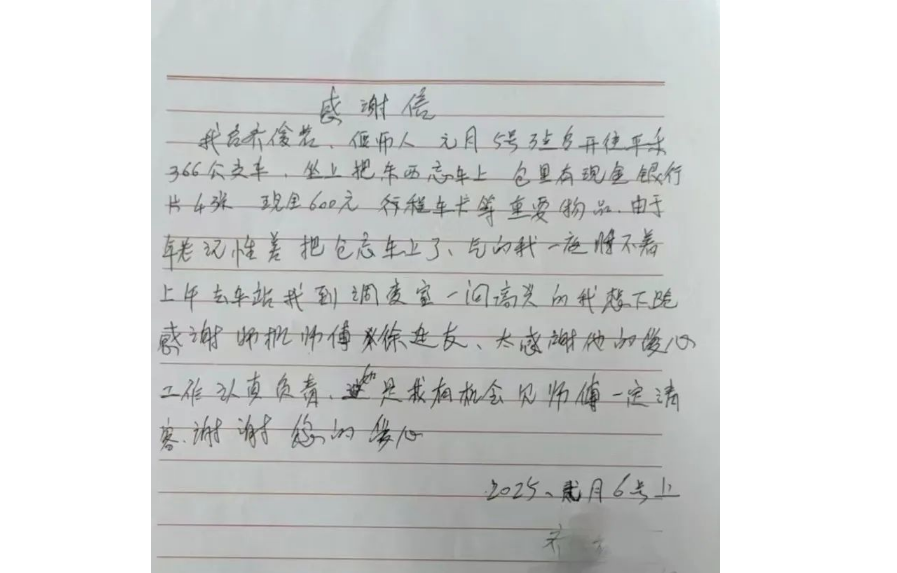 感谢信
我名齐俊芳、偃师人 元月5号3点多开往平乐
366公交车、坐上把东西忘车上 包里有现金银行
片4张 现金600元 行程车卡等重要物品、由于
年老记性差把包忘车上了、气的我一夜睡不着
上午去车站找到调度室一问高兴的我想下跪
感谢师机师傅徐连友、太感谢他的傻心
工作认真负责、如是我有机会见师傅一定请
客、谢谢您的
2025、元月6号上
齐